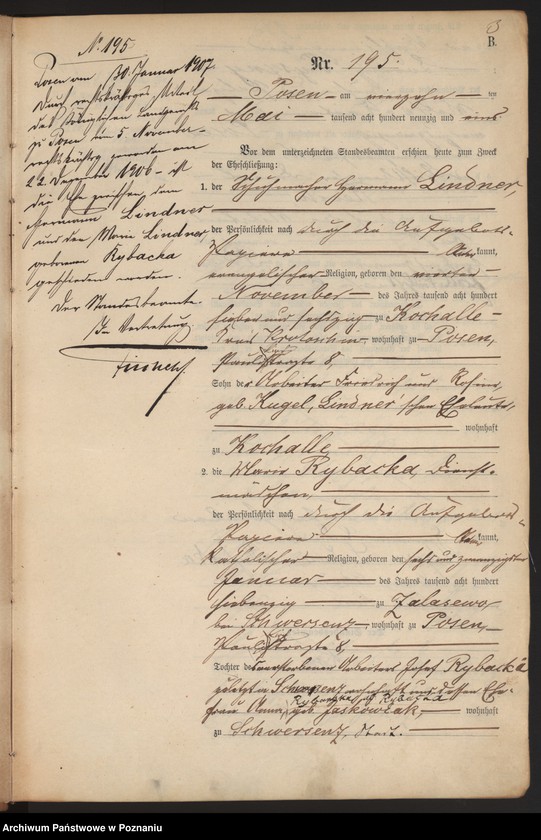 B.
Nr. 195.
Posen am vierzehn ten
Mai tausend acht hundert neunzig und eins
Vor dem unterzeichneten Standesbeamten erschien heute zum Zweck
der Eheschließung:
1. der Schuhmacher Hermann Lindner,
der Persönlichkeit nach durch die Aufgebots-
Papiere kannt,
evangelischer Religion, geboren den vierten
November des Jahres tausend acht hundert
sieben und sechszig zu Kochalle
Kreis Krotoschin, wohnhaft zu Posen,
Paulistraße 8,
Sohn des Arbeiter Friedrich und Rosina,
geb. Kugel, Lindner'schen Eheleute,
wohnhaft
zu Kochalle
2. die Maria Rybacka, Dienst-
mädchen,
der Persönlichkeit nach durch die Aufgebots-
Papiere kannt,
katholischer Religion, geboren den sechs und zwanzigsten
Januar des Jahres tausend acht hundert
siebenzig zu Zalasewo
bei Schwersenz, wohnhaft zu Posen,
Paulistraße 8,
Tochter des verstorbenen Arbeiters Josef Rybacka
zuletzt in Schwersenz wohnhaft und dessen Ehe-
frau geb. Jaskowiak, wohnhaft
zu Schwersenz,
No 195
Posen am 30. Januar 1907.
Durch rechtskräftiges Urteil
des Königlichen Landgerichts
zu Posen vom 5 November
rechtskräftig geworden am
22 Dezember 1906 ist
die Ehe zwischen dem
Hermann Lindner
und der Maria Lindner,
geborenen Rybacka
geschieden worden.
Der Standesbeamte.
In Vertretung.
Archiwum Państwowe w Poznaniu